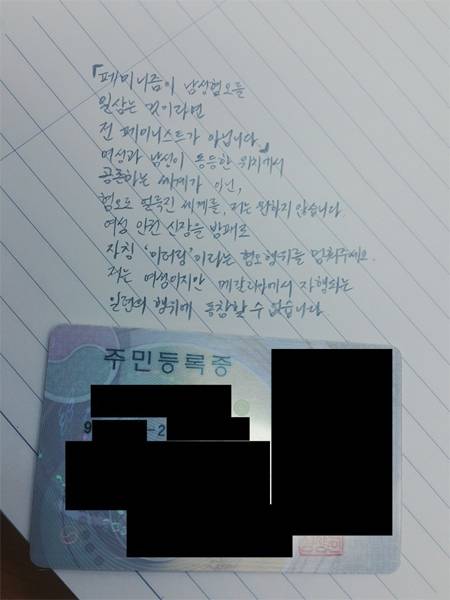 「페미니즘이 남성혐오를
일삼는 것이라면
전 페미니스트가 아닙니다.」
여성과 남성이 동등한 위치에서
공존하는 세계가 아닌,
혐오로 얼룩진 세계를, 저는 원하지 않습니다
여성 인권 신장을 방패로
자칭 '미러링'이라는 혐오행위를 멈춰주세요.
저는 여성이지만 메갈리아에서 자행되는
일련의 행위에 동참할 수 없습니다
주민등록증
9 -2